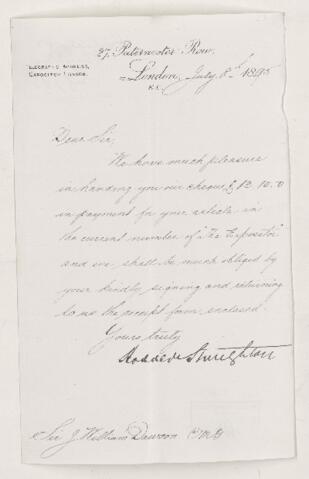 27, Paternoster Row,
TELEGRAPHIC ADDRESS,
EXPOSITOR LONDON.
London, July 8th 1895
E.C.
Dear Sir,
We have much pleasure
in handing you our cheque £ 12.10.0
in payment for your article in
the current number of "The Expositor"
and we shall be much obliged by
your kindly signing and returning
to us the receipt form enclosed.
Yours truly
Hodder & Stoughton
Sir J. William Dawson CMG